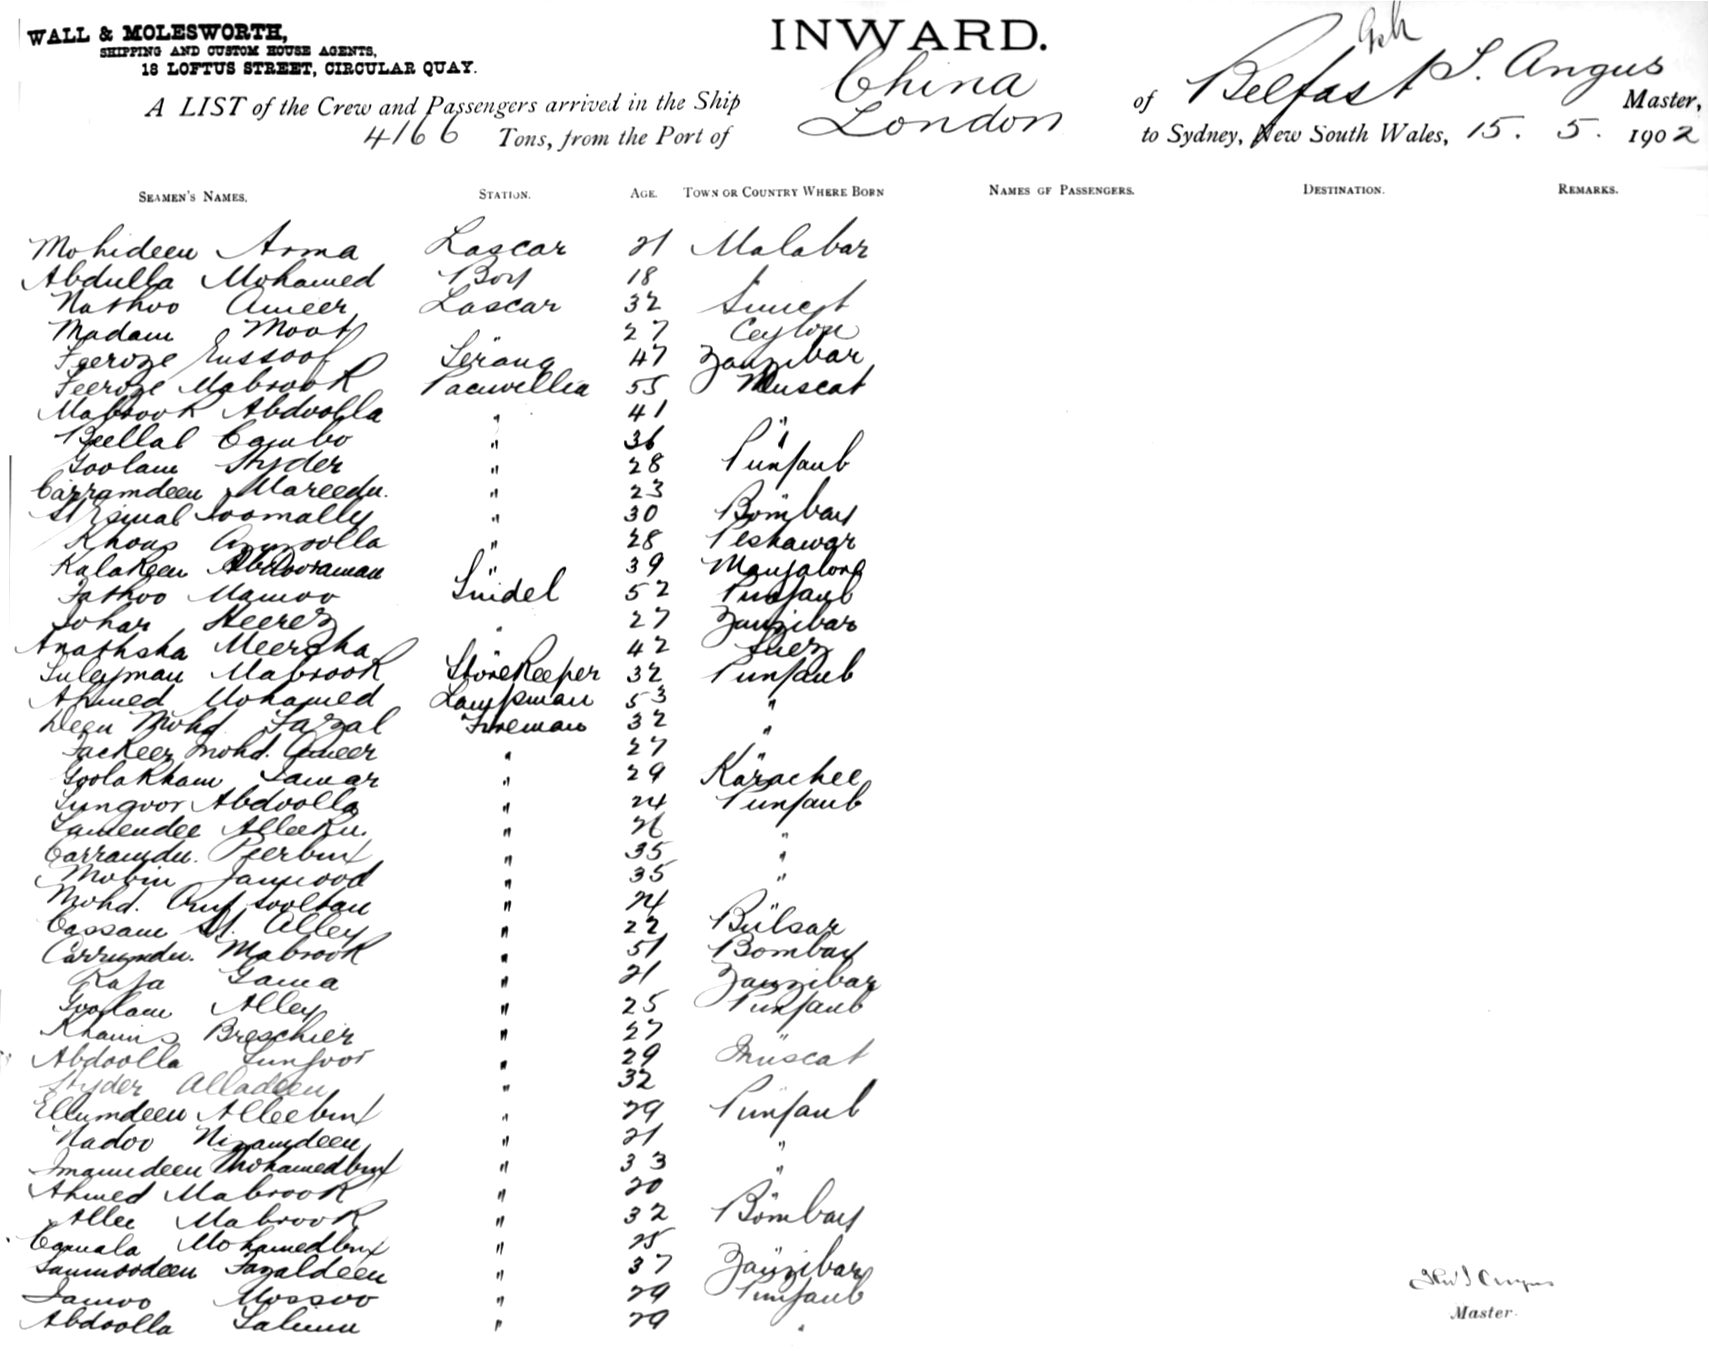 WALL & MOLESWORTH,
SHIPPING AND CUSTOM HOUSE AGENTS,
18 LOFTUS STREET, CIRCULAR QUAY.
INWARD.
A LIST of the Crew and Passengers arrived in the Ship China of Belfast J. Angus Master,
4166 Tons, from the Port of London to Sydney, New South Wales, 15. 5. 1902
SEAMEN'S NAMES. STATION. AGE. TOWN OR COUNTRY WHERE BORN NAMES OF PASSENGERS. DESTINATION. REMARKS.
Mohideen Asma Lascar 21 Malabar
Abdulla Mohamed Boy 18 "
Nathoo Ameer Lascar 32
Madam Moot 27 Ceylon
Feeroze Eussoof Serang 47 Zanzibar
Feeroze Mabrook 55 Muscat
Mabrook Abdoolla " 41
Beellal Cambo " 36 "
Goolam Hyder " 28 Punjaub
Carramdeen Mareedn. " 23
Soomally " 30 Bombay
Khoas " 28 Peshawar
Kalakeen Abdooraman " 39 Mangalore
Mamoo Tindel 52 Punjaub
Johar Heerez " 27 Zanzibar
Meerzha " 42 Suez
Suleyman Mabrook Storekeeper 32 Punjaub
Ahmed Mohamed Lampman 53 "
Deen Mohd. Fazal Fireman 32 "
Fackeer Mohd. Ameer " 27 "
Goolakham " 29 Karachee
Sungoor Abdoolla " 24 Punjaub
" 26 "
Carramdn. Peerbux " 35 "
Mobin " 35 "
Mohd. Sooltan " 24
Cassam Alley " 22 Bulsar
Carrumdn. Mabrook " 51 Bombay
Raja Gama " 21 Zanzibar
Goolam Alley " 25 Punjaub
Khamis Breschier " 27
Abdoolla Sungoor " 29 Muscat
Hyder Alladeen " 32
Ellumdeen Alleebux " 29 Punjaub
Nadoo Nizamdeen " 21 "
Imamdeen Mohamedbux " 33 "
Ahmed Mabrook " 20
Allee Mabrook " 32 Bombay
Mohamedbux " 25
Fazaldeen " 37 Zanzibar
Moosoo " 29 Punjaub
Abdoolla Salimu " 29 "
Angus
Master.